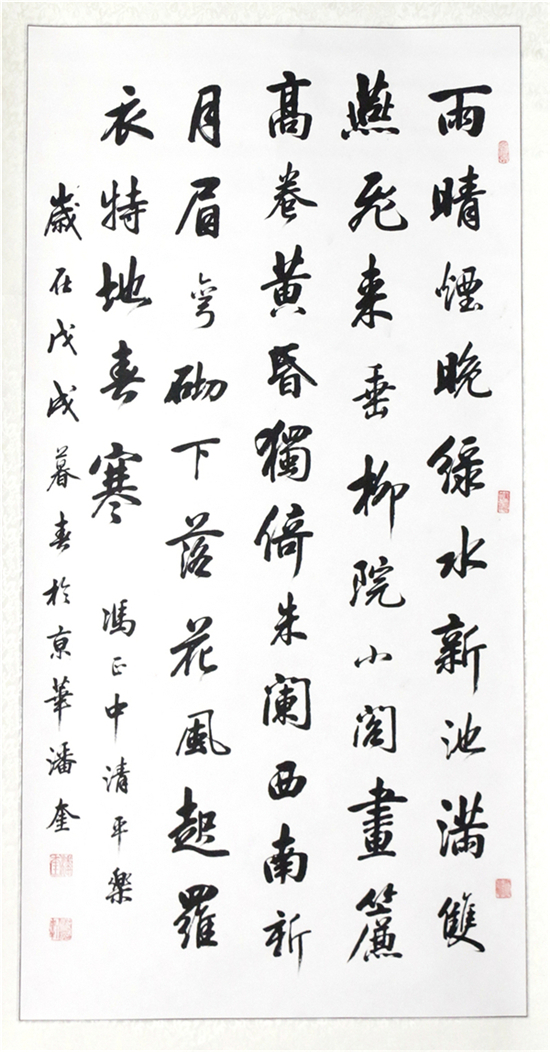 雨晴煙晚綠水新池滿雙
燕飛來垂柳院小閣畫簾
高卷黃昏獨倚朱闌西南新
月眉彎砌下落花風起羅
衣特地春寒 馮正中清平樂
歲在戊戌暮春於京華潘奎